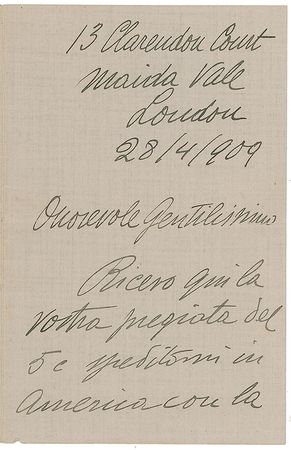 13 Clarendon Court
Maida Vale
London
28/4/909
Onorevole Gentilissimo
Ricevo qui la
vostra pregiata del
5 c speditomi in
America con la